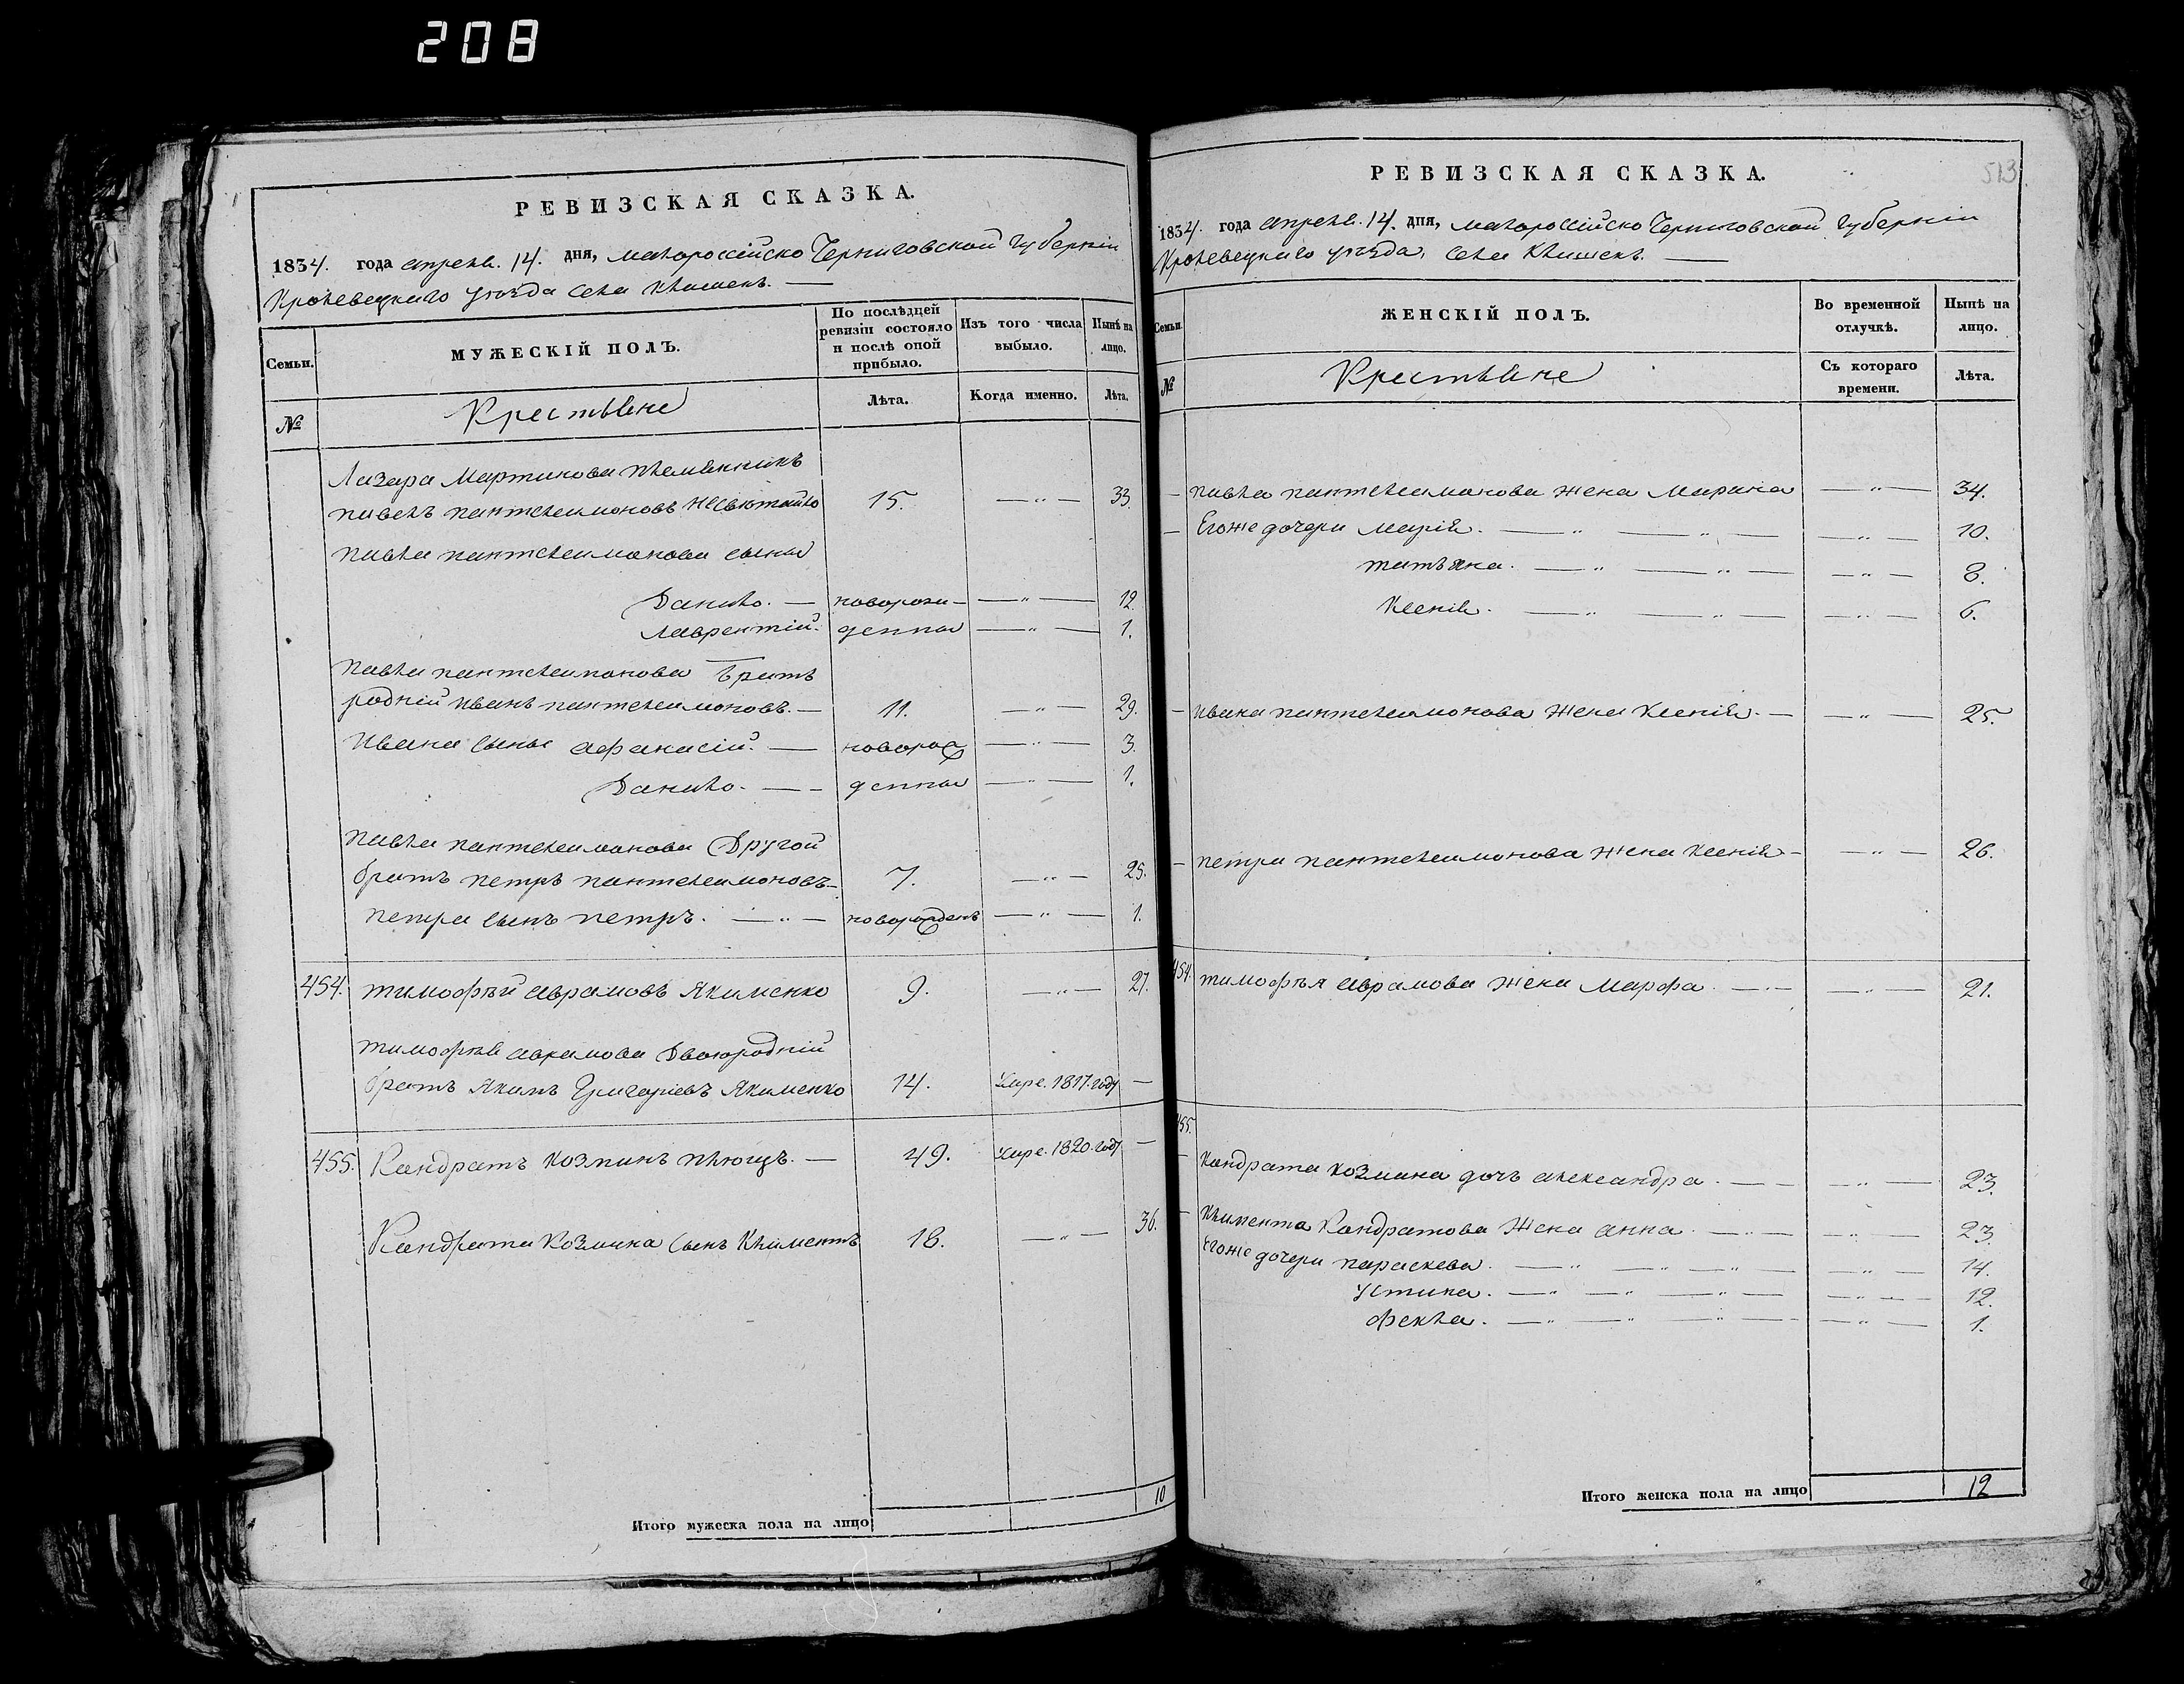 208
РЕВИЗСКАЯ СКАЗКА.
1834. года апреля. 14. дня, малороссійско Черниговской губерніи
Кролевецкаго уѣзда села Клишекъ. —
Семьи.
МУЖЕСКІЙ ПОЛЪ.
По послѣдней ревизіи состояло и послѣ оной прибыло.
Изъ того числа выбыло.
Нынѣ на лицо.
№
Крестьяне
Лѣта.
Когда именно.
Лѣта.
Лазаря Мартинова племянникъ
павелъ пантелеимоновъ 15. — „ — 33.
павла пантелеимонова сыны
Данило. — новорож- — „ — 12.
Лаврентій. денны — „ — 1.
павла пантелеимонова братъ
родній иванъ пантелеимоновъ. — 11. — „ — 29.
ивана сыны афанасій. — новорож — „ — 3.
Данило. — — денны — „ — 1.
павла пантелеимонова Другой
братъ петръ пантелеимоновъ — 7. — „ — 25.
петра сынъ петръ. — „ — новорожденъ — „ — 1.
454. тимофѣй аврамовъ Якименко 9. — „ — 27.
тимофѣя аврамова Двоюродній
братъ Якимъ Григоріевъ Якименко 14. Умре. 1817. году —
455. Кондратъ Козминъ плющъ. — 49. Умре. 1820. году —
Кондрата Козмина сынъ Климентъ 18. — „ — 36.
Итого мужеска пола на лицо 10
РЕВИЗСКАЯ СКАЗКА.
513
1834. года апреля. 14. дня, малороссійско Черниговской губерніи
Кролевецкаго уѣзда, села Клишекъ. —
Семьи.
ЖЕНСКІЙ ПОЛЪ.
Во временной отлучкѣ.
Нынѣ на лицо.
№
Крестьяне
Съ котораго времени.
Лѣта.
— павла пантелеимонова жена Марина — „ — 34.
— Егоже дочери марія. — „ — „ — — „ — 10.
татьяна. — „ — „ — — „ — 8.
Ксенія. — „ — „ — — „ — 6.
— ивана пантелеимонова жена Ксенія. — — „ — 25.
— петра пантелеимонова жена Ксенія — — „ — 26.
454. тимофѣя аврамова жена Марфа. — „ — — „ — 21.
455.
— Кондрата козмина дочъ александра. — — — „ — 23.
— Климента Кондратова жена анна. — „ — — „ — 23
Егоже дочери параскева. — „ — „ — „ — — „ — 14.
Устина. — „ — „ — „ — — „ — 12.
фекла. — „ — „ — „ — — „ — 1.
Итого женска пола на лицо 12